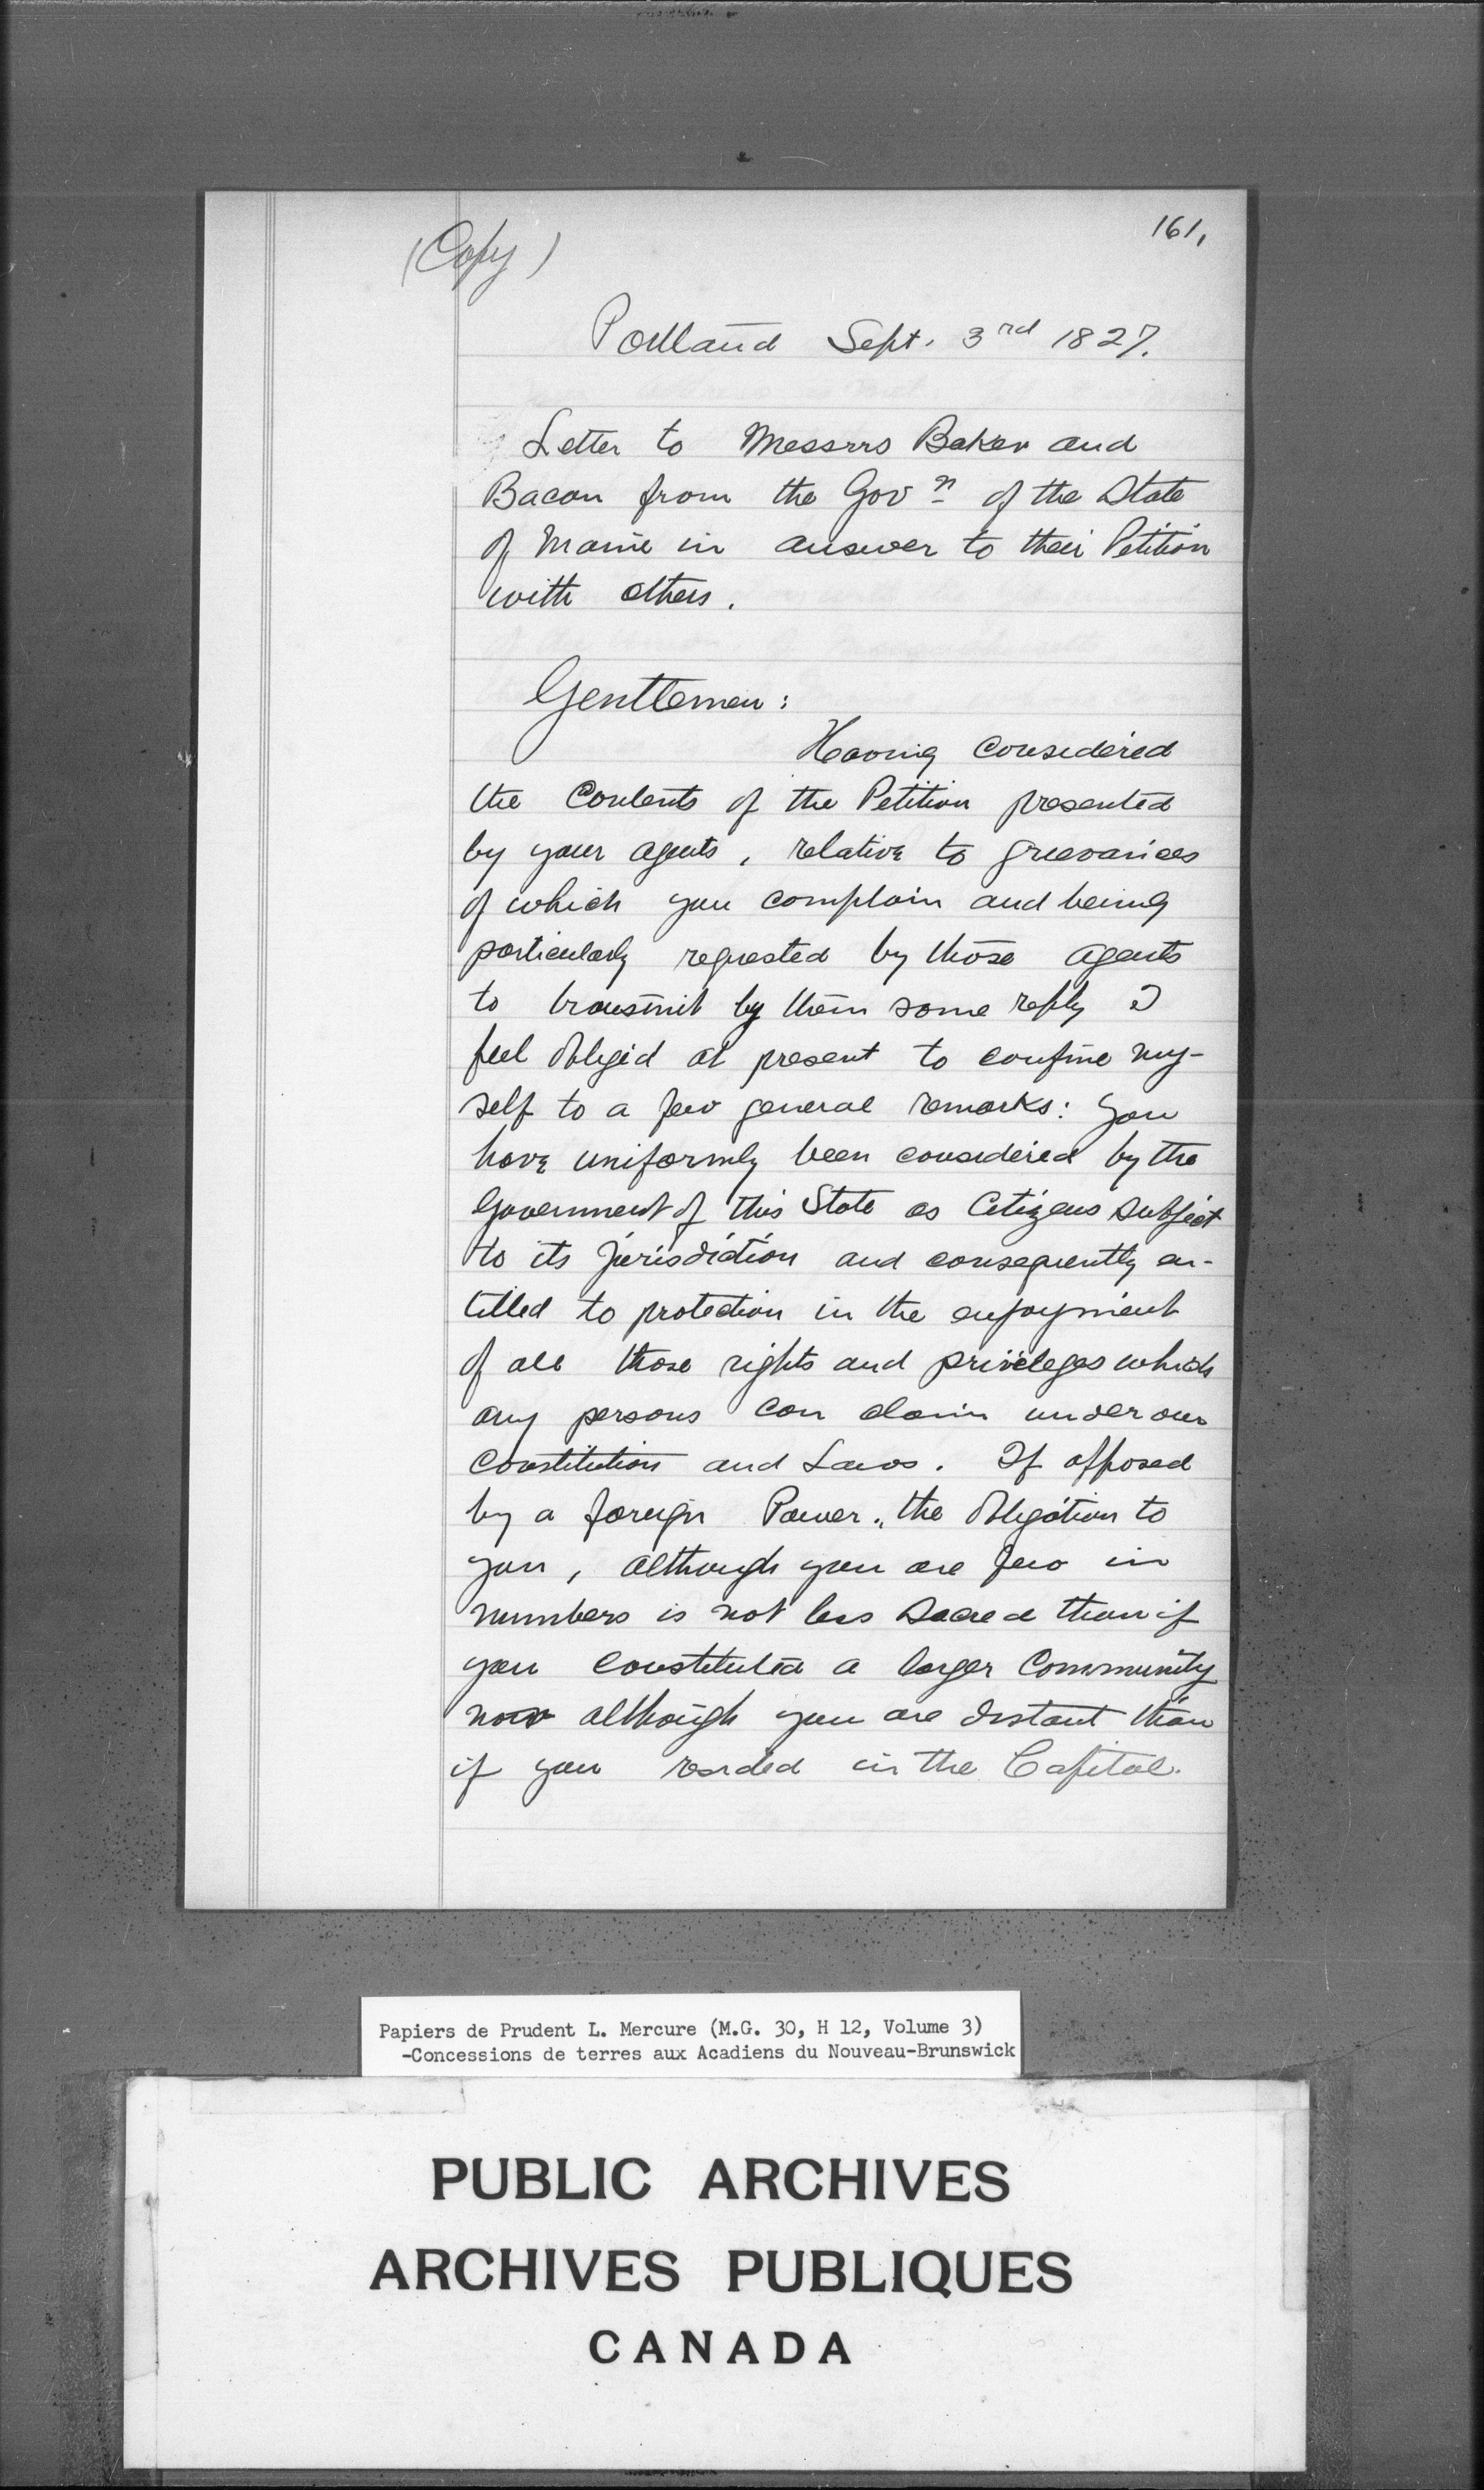 161,
(Copy)
Portland Sept. 3rd 1827.
Letter to Messrrs Baker and
Bacon from the Govn of the State
of Maine in answer to their Petition
with others.
Gentlemen:
Having considered
the Contents of the Petition presented
by your agents, relative to grievances
of which you complain and being
particularly requested by those agents
to transmit by them some reply I
feel obliged at present to confine my-
self to a few general remarks: You
have uniformly been considered by the
Government of this State as Citizens subject
to its jurisdiction and consequently en-
titled to protection in the enjoyment
of all those rights and privileges which
any persons can claim under our
Constitution and Laws. If opposed
by a foreign Power, the obligation to
you, although you are few in
numbers is not less sacred than if
you constituted a larger Community
now although you are distant than
if you resided in the Capitol.
Papiers de Prudent L. Mercure (M.G. 30, H 12, Volume 3)
-Concessions de terres aux Acadiens du Nouveau-Brunswick
PUBLIC ARCHIVES
ARCHIVES PUBLIQUES
CANADA